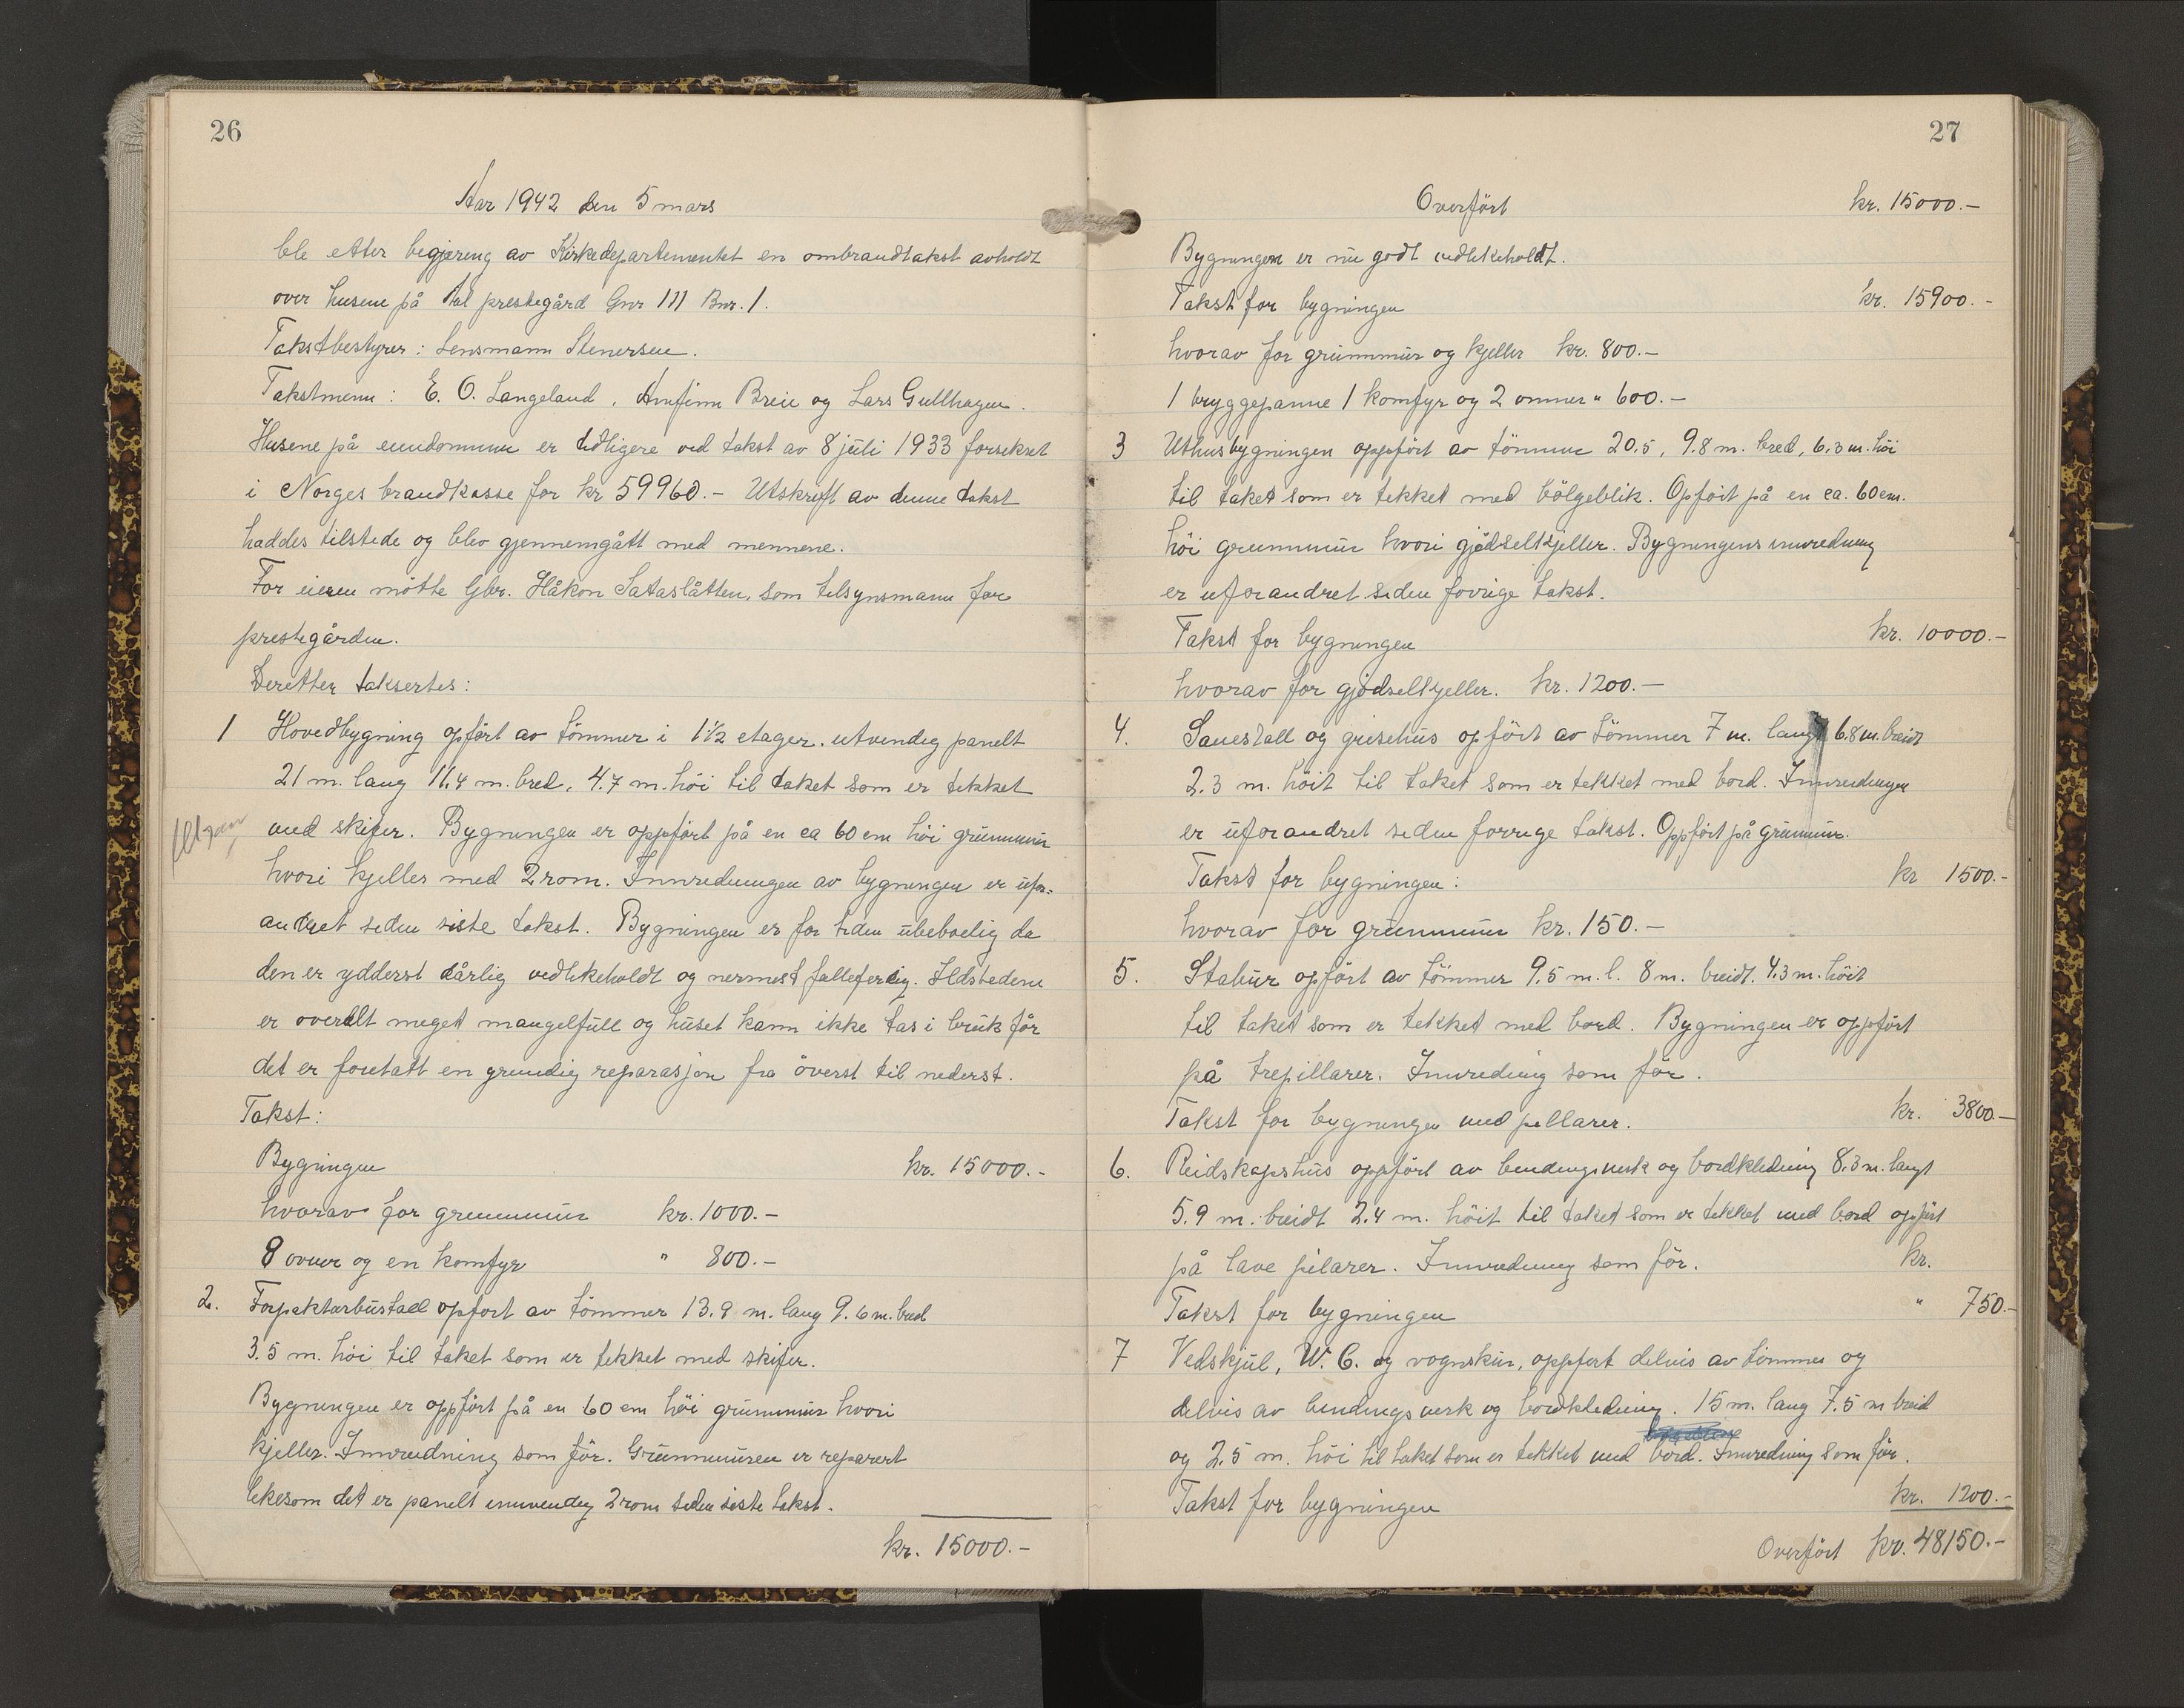 26
Aar 1942 den 5 mars
ble etter begjæring av Kirkedepartementet en ombrandtakst avholdt
over husene på Aal prestegård Gnr 111 Bnr. 1.
Takstbestyrer: Lensmann Stenersen.
Takstmenn: E. O. Langeland, Arnfinn Breie og Lars Gullhagen.
Husene på eiendommen er tidligere ved takst av 8 juli 1933 forsikret
i Norges brandkasse for kr 59960.- Utskrift av denne takst
haddes tilstede og blev gjennemgått med mennene.
For eieren mötte Gbr. Håkon Sataslåtten, som tilsynsmann for
prestegården.
Deretter taksertes:
1 Hovedbygning opfört av tömmer i 1½ etager. utvendig panelt
21 m. lang 11,4 m. bred, 4.7 m. höi til taket som er tekket
med skifer. Bygningen er oppfört på en ca 60 cm höi grunnmur
hvori kjeller med 2 rom. Innredningen av bygningen er ufor=
andret siden siste takst. Bygningen er for tiden ubeboelig da
den er ydderst dårlig vedlikeholdt og nermest falleferdig. Ildstedene
er overalt meget mangelfull og huset kann ikke tas i bruk för
det er foretatt en grundig reparasjon fra överst til nederst.
Takst:
Bygningen kr. 15000.-
hvorav for grunnmur kr. 1000.-
8 ovner og en komfyr " 800.-
2. Forpakterbustad opfort av tömmer 13.9 m. lang 9.6 m. bred
3.5 m. höi til taket som er tekket med skifer.
Bygningen er oppfört på en 60 cm höi grunnmur hvori
kjeller. Innredning som för. Grunnmuren er reparert
likesom det er panelt innvendig 2 rom siden siste takst.
kr. 15000.-
27
Overfört kr. 15000.-
Bygningen er nu godt vedlikeholdt.
Takst for bygningen kr. 15900.-
hvorav for grunnmur og kjeller kr. 800.-
1 bryggepanne 1 komfyr og 2 omner " 600.-
3 Uthusbygningen oppfört av tömmer 20.5, 9.8 m. bred, 6.3 m. höi
til taket som er tekket med bölgeblik. Opfört på en ca. 60 cm.
höi grunnmur hvori gjödselkjeller. Bygningens innredning
er uforandret siden forrige takst.
Takst for bygningen kr. 10000.-
hvorav for gjödselkjeller. kr. 1200.-
4. Sauestall og grisehus opfört av tömmer 7 m. langt 6.8 m. breidt
2.3 m. höit til taket som er tekket med bord. Innredningen
er uforandret siden forrige takst. Oppfört på grunnmur.
Takst for bygningen: kr 1500.-
hvorav for grunnmur kr. 150.-
5. Stabur opfört av tömmer 9.5 m. l. 8 m. breidt. 4,3 m. höit
til taket som er tekket med bord. Bygningen er oppfört
på trepillarer. Innredning som för.
Takst for bygningen med pillarer. kr. 3800.-
6. Reidskapshus oppfört av bindingsverk og bordkledning 8.3 m. langt
5.9 m. breidt 2.4 m. höit til taket som er tekket med bord oppfört
på lave pilarer. Innredning som för. kr.
Takst for bygningen " 750.-
7 Vedskjul, W. C. og vognskur, oppfort delvis av tömmer og
delvis av bindingsverk og bordkledning. 15 m. lang 7.5 m breid
og 2.5 m. höi til taket som er tekket med bord. Innredning som för.
Takst for bygningen kr. 1200.-
Overfört kr. 48150.-